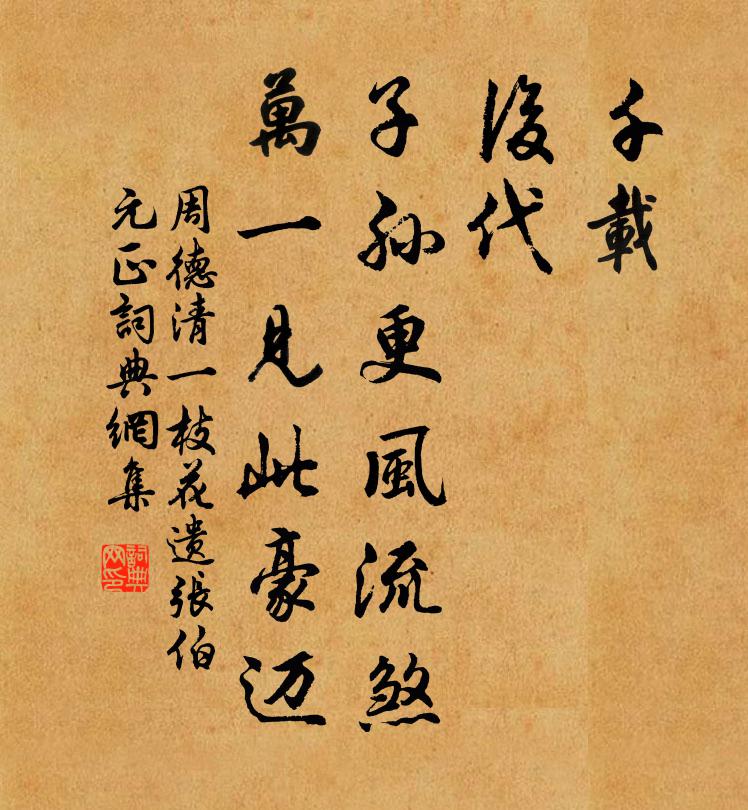 千載
後代
子孙更風流煞
萬一見此豪迈
周德清一枝花遗張伯
元正詞典網集
詞典网印